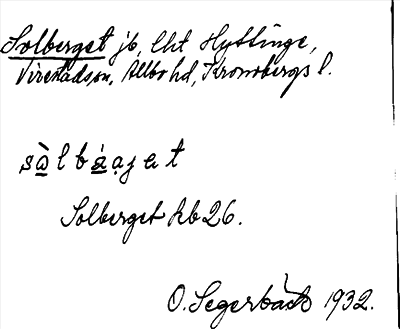 Solberget jb, lht Hyttinge,
Virestads sn, Allbo hd, Kronobergs l.
sàlbáajet
Solberget kb 26.
O. Segerbäck 1932.